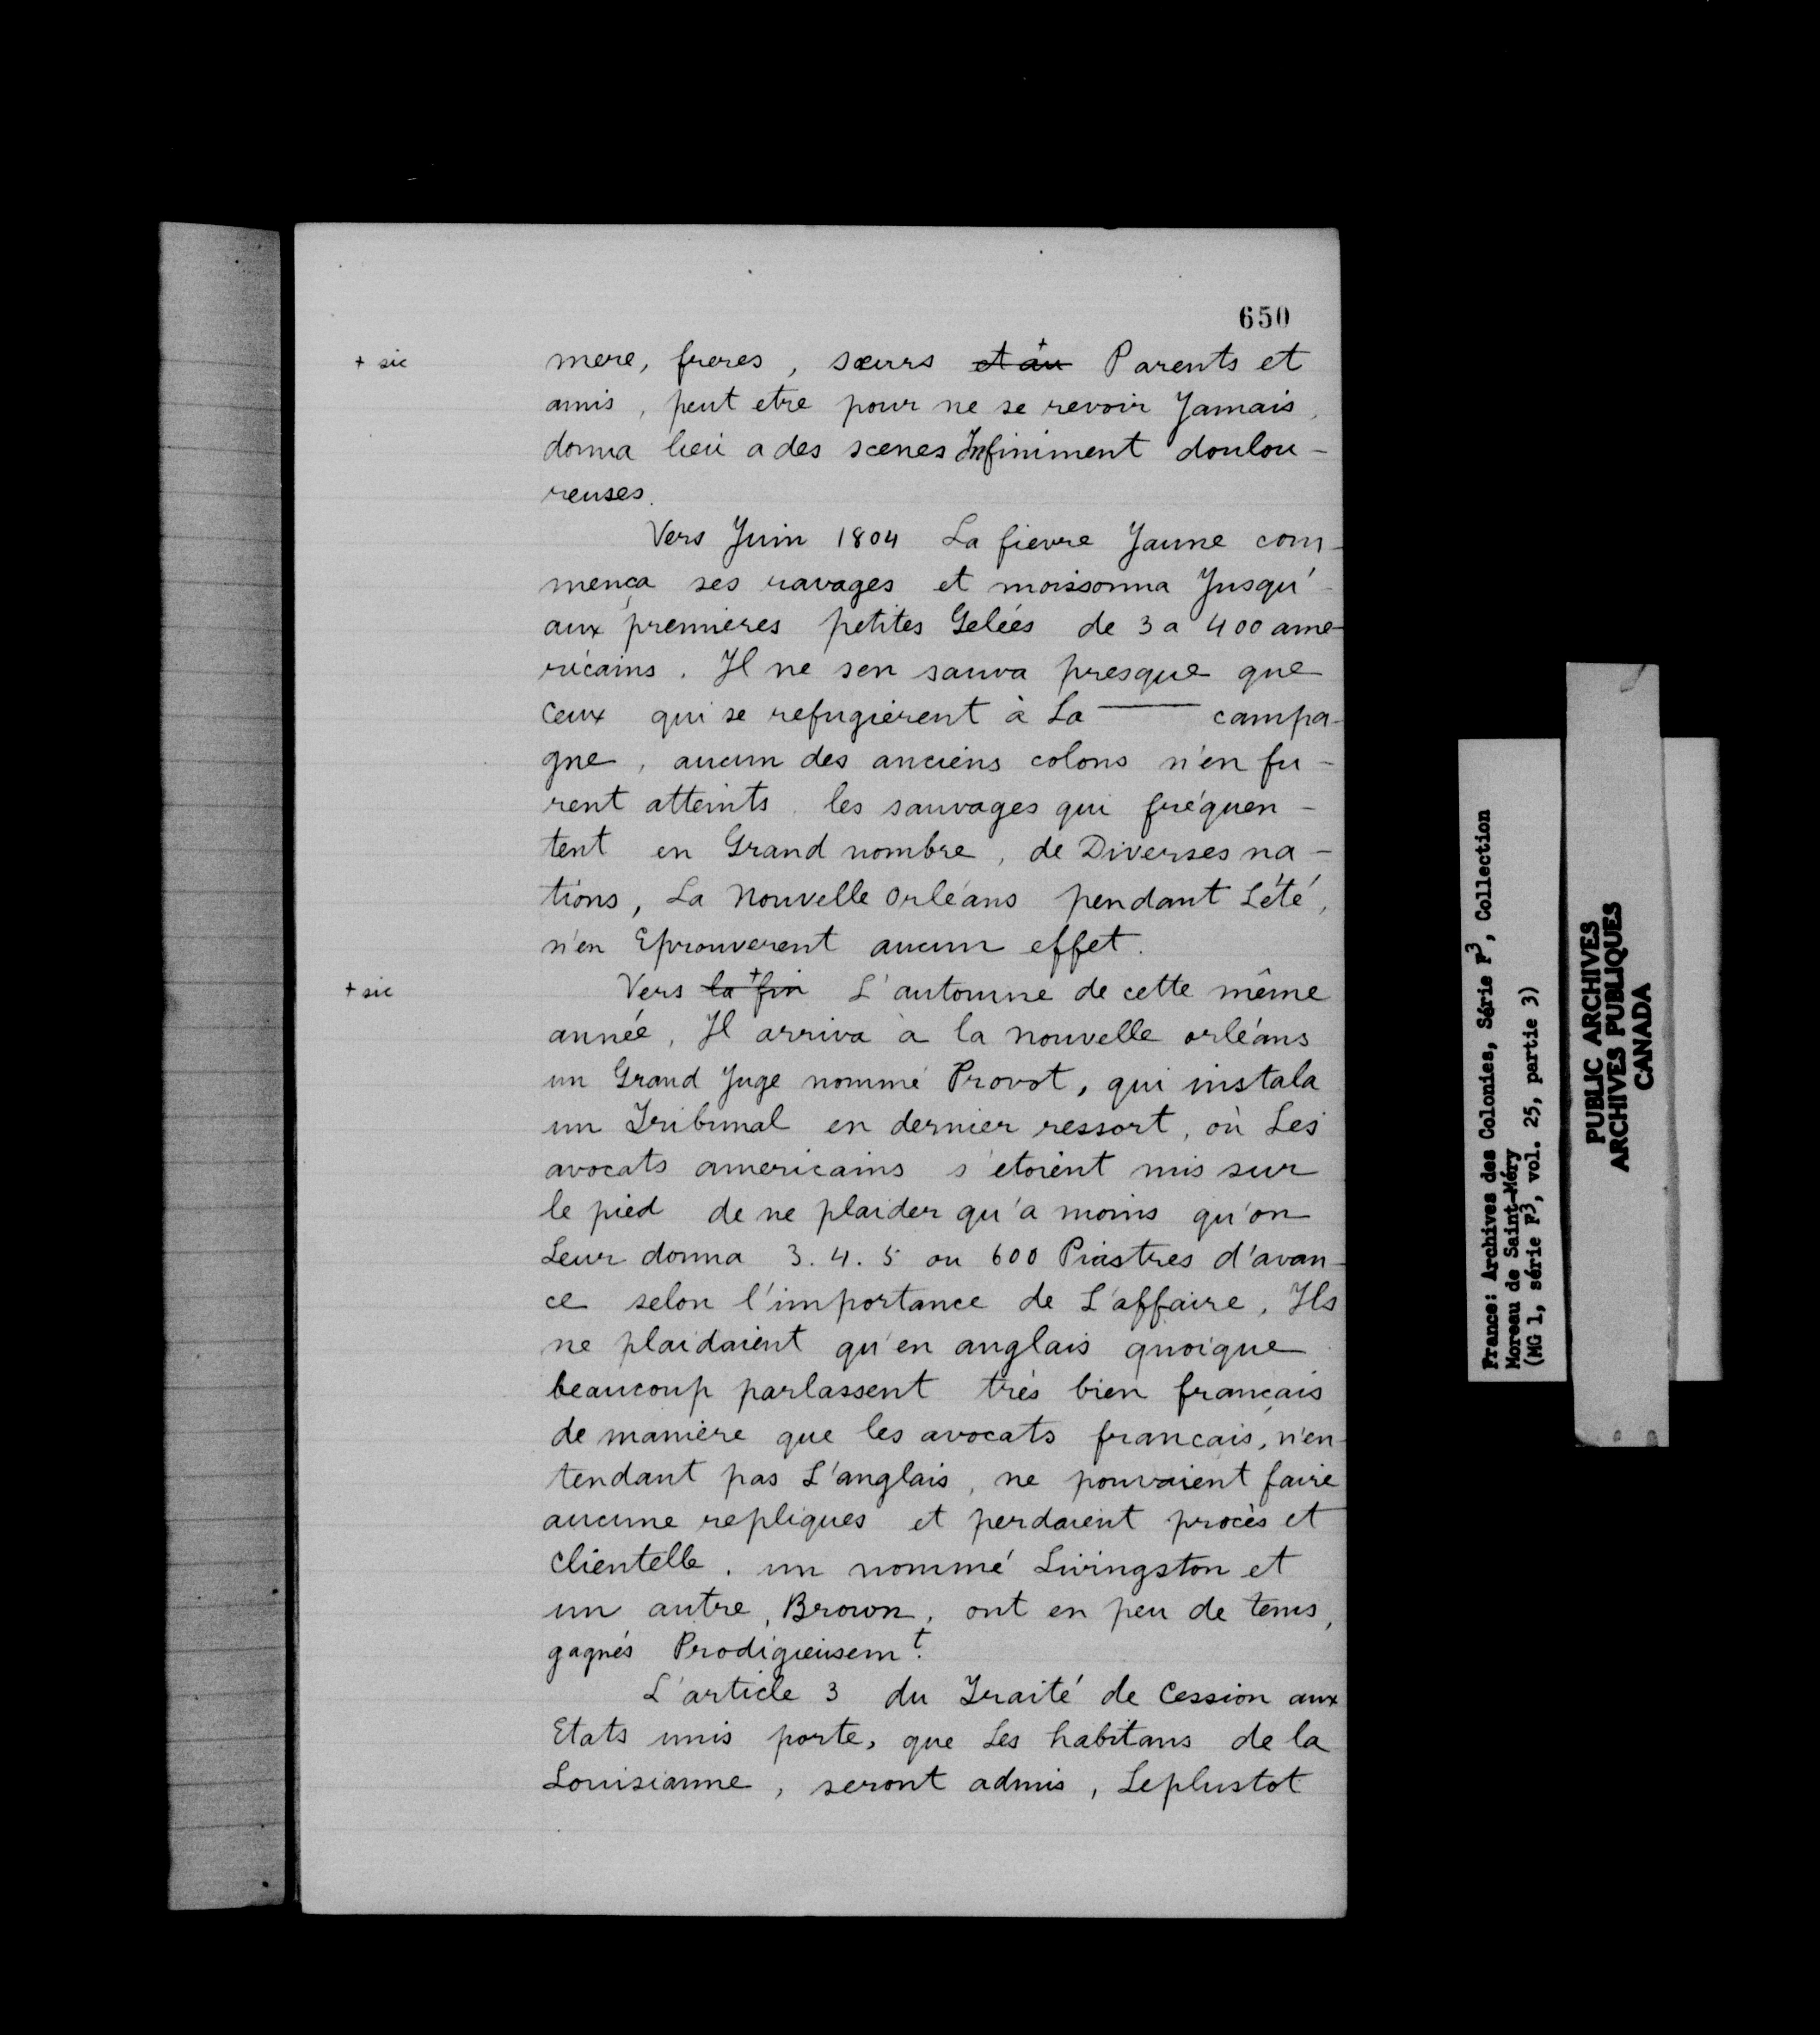 650
+ sic
mere, freres, sœurs et au + Parents et
amis, peut etre pour ne se revoir Jamais,
donna lieu a des scenes Infiniment doulou-
reuses.
Vers Juin 1804 La fievre Jaune com-
mença ses ravages et moissonna Jusqu'
aux premieres petites Gelées de 3 a 400 ame-
ricains. Il ne sen sauva presque que
Ceux qui se refugièrent à La —— campa-
gne, aucun des anciens colons n'en fu-
rent atteints les sauvages qui fréquen-
tent en Grand nombre, de Diverses na-
tions, La Nouvelle Orléans pendant L'été,
n'en Eprouverent aucun effet.
+ sic
Vers la + fin L'automne de cette même
année, Il arriva à la Nouvelle orléans
un Grand Juge nommé Provot, qui instala
un Tribunal en dernier ressort, où Les
avocats americains s'etoient mis sur
le pied de ne plaider qu'a moins qu'on
Leur donna 3. 4. 5 ou 600 Piastres d'avan-
ce selon l'importance de L'affaire, Ils
ne plaidaient qu'en anglais quoique
beaucoup parlassent très bien français
de manière que les avocats francais, n'en-
tendant pas L'anglais, ne pouvaient faire
aucune repliques et perdaient procès et
Clientelle. un nommé Livingston et
un autre, Brown, ont en peu de tems,
gagnés Prodigieusemt.
L'article 3 du Traité de Cession aux
Etats unis porte, que Les habitans de la
Louisianne, seront admis, Leplustot
France: Archives des Colonies, Série F3, Collection
Moreau de Saint-Méry
(MG 1, série F3, vol. 25, partie 3)
PUBLIC ARCHIVES
ARCHIVES PUBLIQUES
CANADA